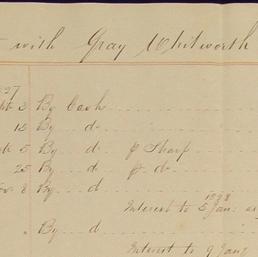 with Gray Whitworth
27
3 By Cash
15 By d
5 By d p Sharp
25 By d p do
8 By d
1828
Interest to 5 Jan:
" By d
Interest to 9 Jany